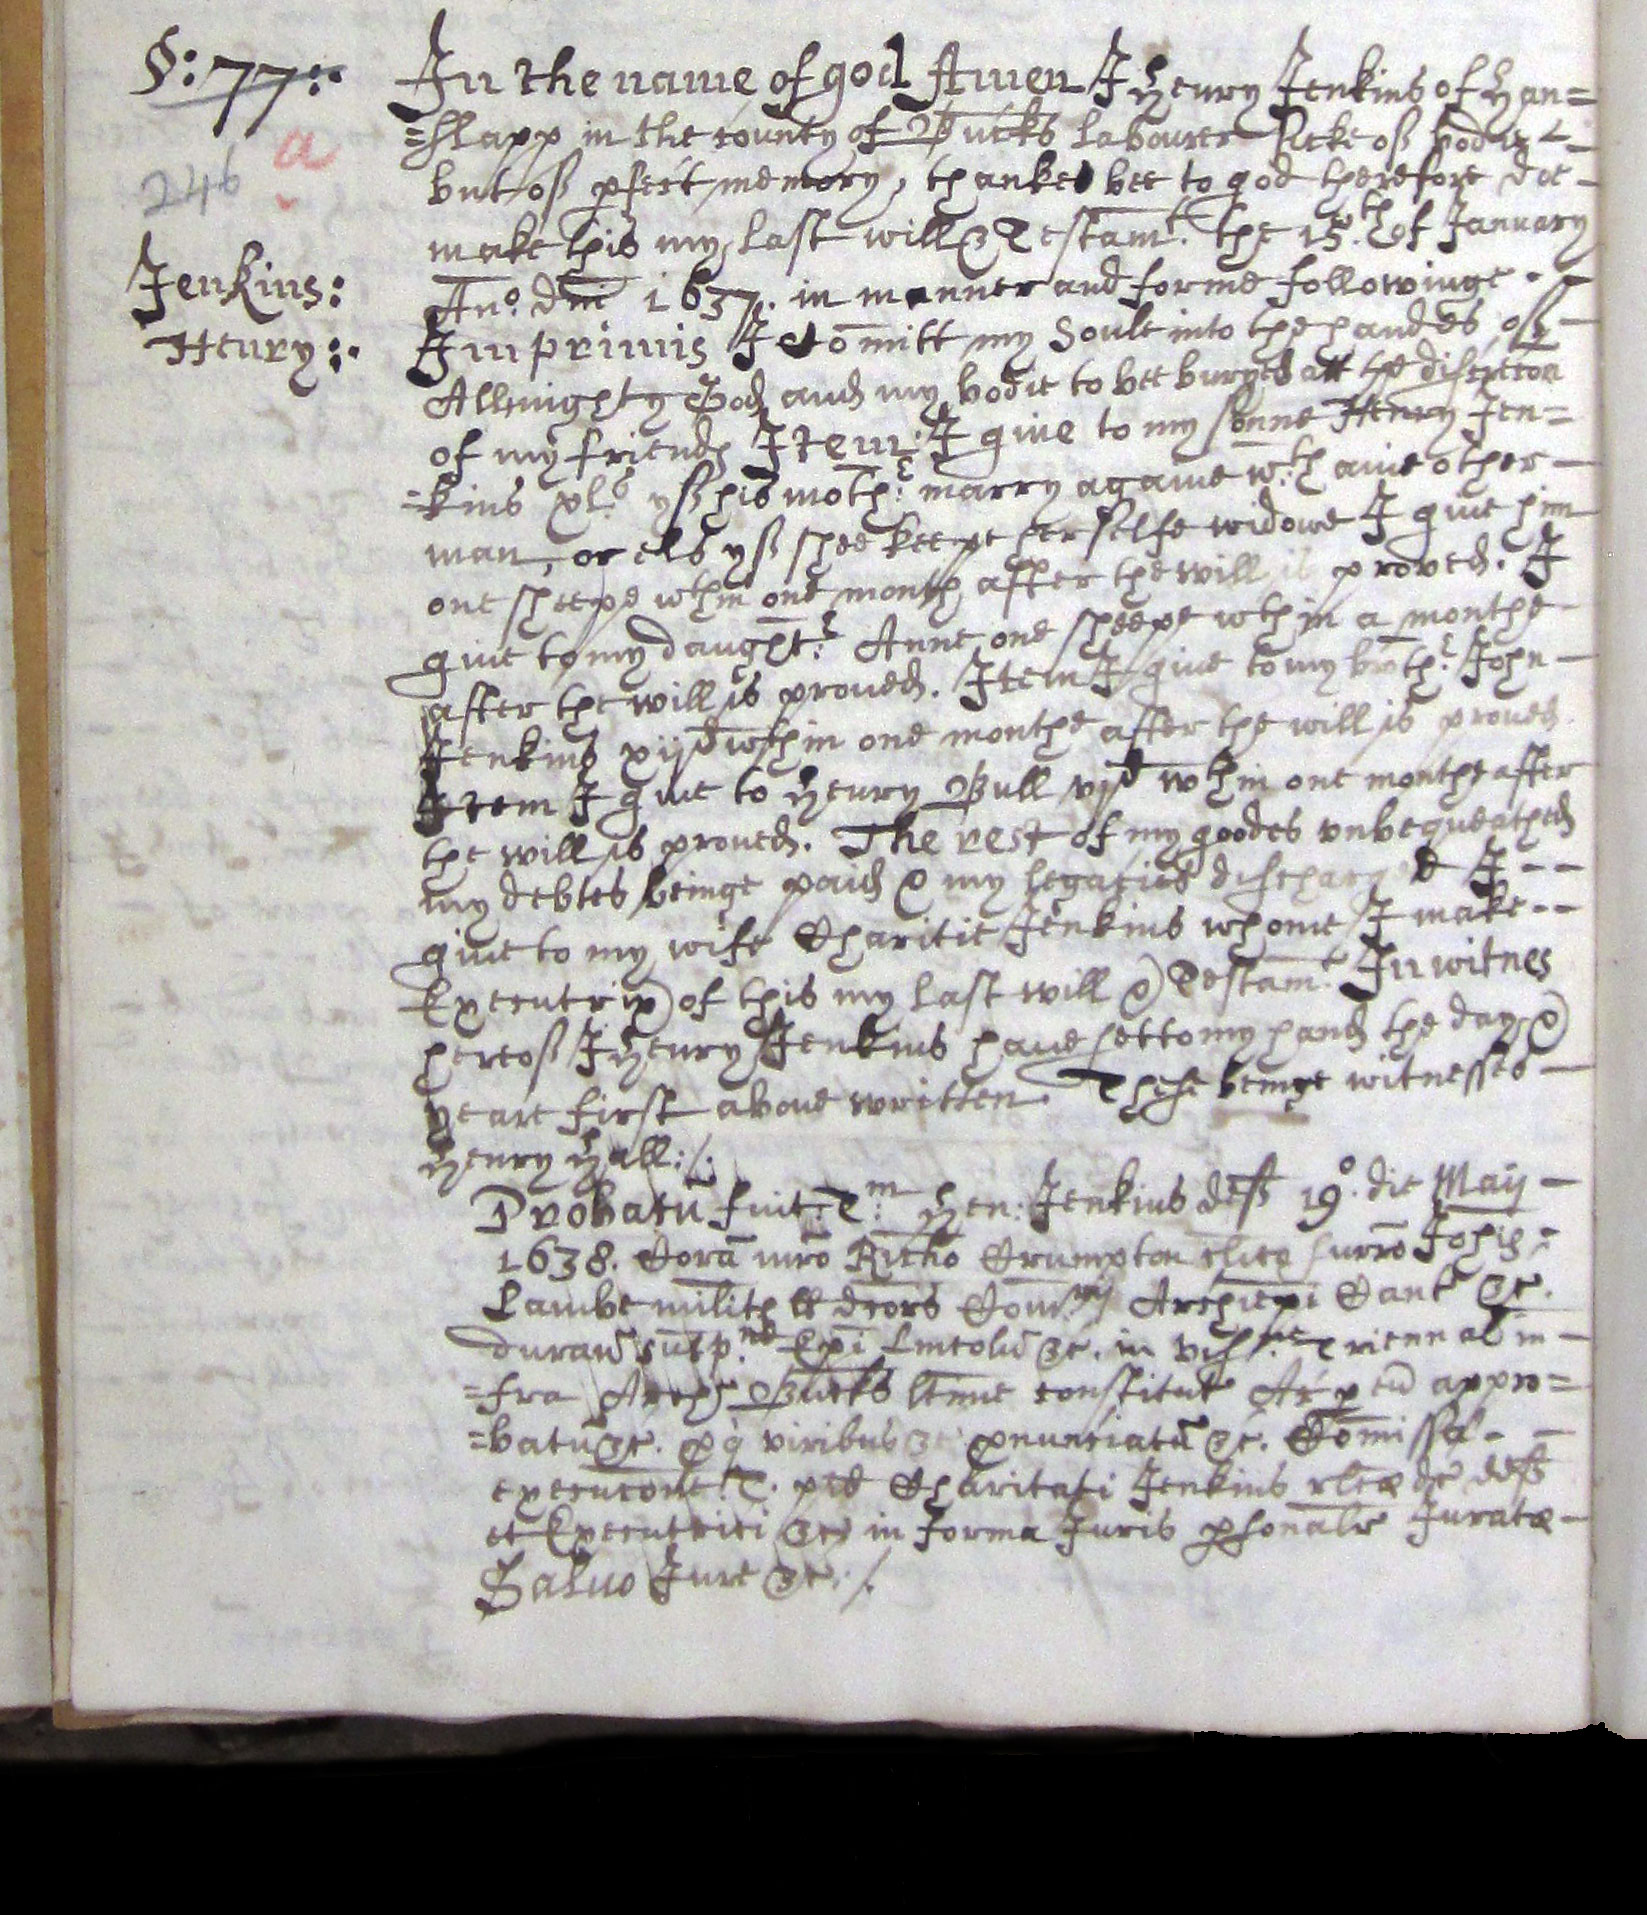 §: 77:.
a
246
Jenkins:
Henry:.
In the name of god Amen I Henry Jenkins of Han=
=slapp in the county of Bucks labourer sicke of bodie
but of pfect memory, thankes bee to god therefore doe
make this my last will & Testamt. the 15th. of January
Ano. dni 1637. in manner and forme followinge.
Imprimis I comitt my Soule into the handes of
Allmighty God and my bodie to bee buryed att the discrecon
of my friends Item: I give to my sonne Henry Jen=
=kins xls yf his mothr. marry againe wth. anie other
man, or els yf shee keepe her selfe widowe I give him
one sheepe wthin one month after the will is proved. I
give to my daughtr. Anne one sheepe wthin a monthe
after the will is proued. Item I give to my brothr. John
Jenkins xijd wthin one monthe after the will is proued.
Item I giue to Henry Bull vjd wthin one monthe after
the will is proued. The rest of my goodes vnbequeathed
my debtes beinge paid & my legacies discharged I
giue to my wife Charitie Jenkins whome I make
Executrix of this my last will & Testamt. In witnes
hereof I Henry Jenkins haue sett to my hand the day &
yeare first aboue written. These beinge witnesses
Henry Hall:/.
Probatu fuit Tm. Hen: Jenkins deff 19o. die Maij
1638. Cora mro Richo Crumpton clico surro Johis
Lambe milit Archiepi Cant &c.
duran Epi Lincoln &c. in triennal in=
=fra Archi Bucks ltime constitut Ac p eu appro=
=batu &c. pq viribus &c pnunciatu &c. Comissa
execucone T. pred Charitati Jenkins rlcæ dci deff
et Executrici &c in forma Juris psonalr Juratæ
Saluo Jure &c:/.